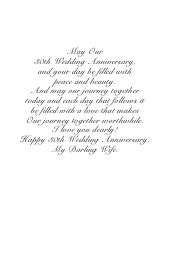 May Our
30th Wedding Anniversary,
and your day be filled with
peace and beauty.
And may our journey together
today and each day that follows it
be filled with a love that makes
Our journey together worthwhile.
I love you dearly!
Happy 30th Wedding Anniversary,
My Darling Wife.